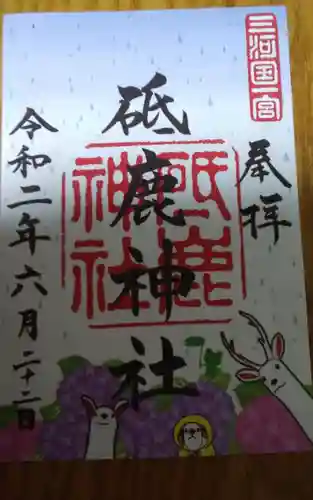 三河国一宮
奉拝
砥鹿神社
砥鹿神社
令和二年六月二十二日